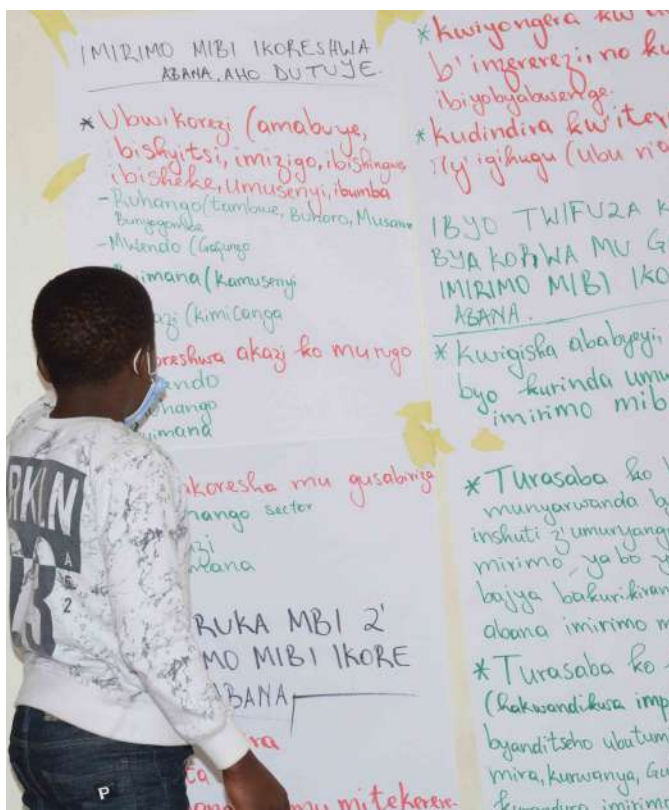 IMIRIMO MIBI IKORESHWA
ABANA AHO DUTUYE.
* Ubwikorezi (amabuye,
bishyitsi, imizigo, ibishingwe
ibisheke, umusenyi, ibumba
- Ruhango (tambwe, Buhoro, Musamo
Bunyogombe
- Mwendo (Gafunzo
imana (kamusenyi
azi (kimicanga
oreshwa akazi ko murugo
ando
hango
imana
akoresha mu gusabiriza
hango sector
zi
mana
RUKA MBI Z'
MO MIBI IKORE
ABANA
ra
ta
mu mitekerere-
* kwiyongera kw'
b'inzererezi, no ku
ibiyobyabwenge.
* kudindira kw'iter
ry'igihugu (ubu n'o
IBYO TWIFUZA K
BYAKORWA MU G
IMIRIMO MIBI IKO
ABANA.
* Kwigisha ababyeyi,
byo kurinda umu
imirimo mib
* Turasaba ko
munyarwanda by
inshuti z'umuryang
mirimo, yabo y
bajya bakurikiran
abana imirimo m
* Turasaba ko
(hakwandikwa imp
byanditseho ubutum
mira, kurwanya, Gu
imirimo
RKLN
A
G
2
P